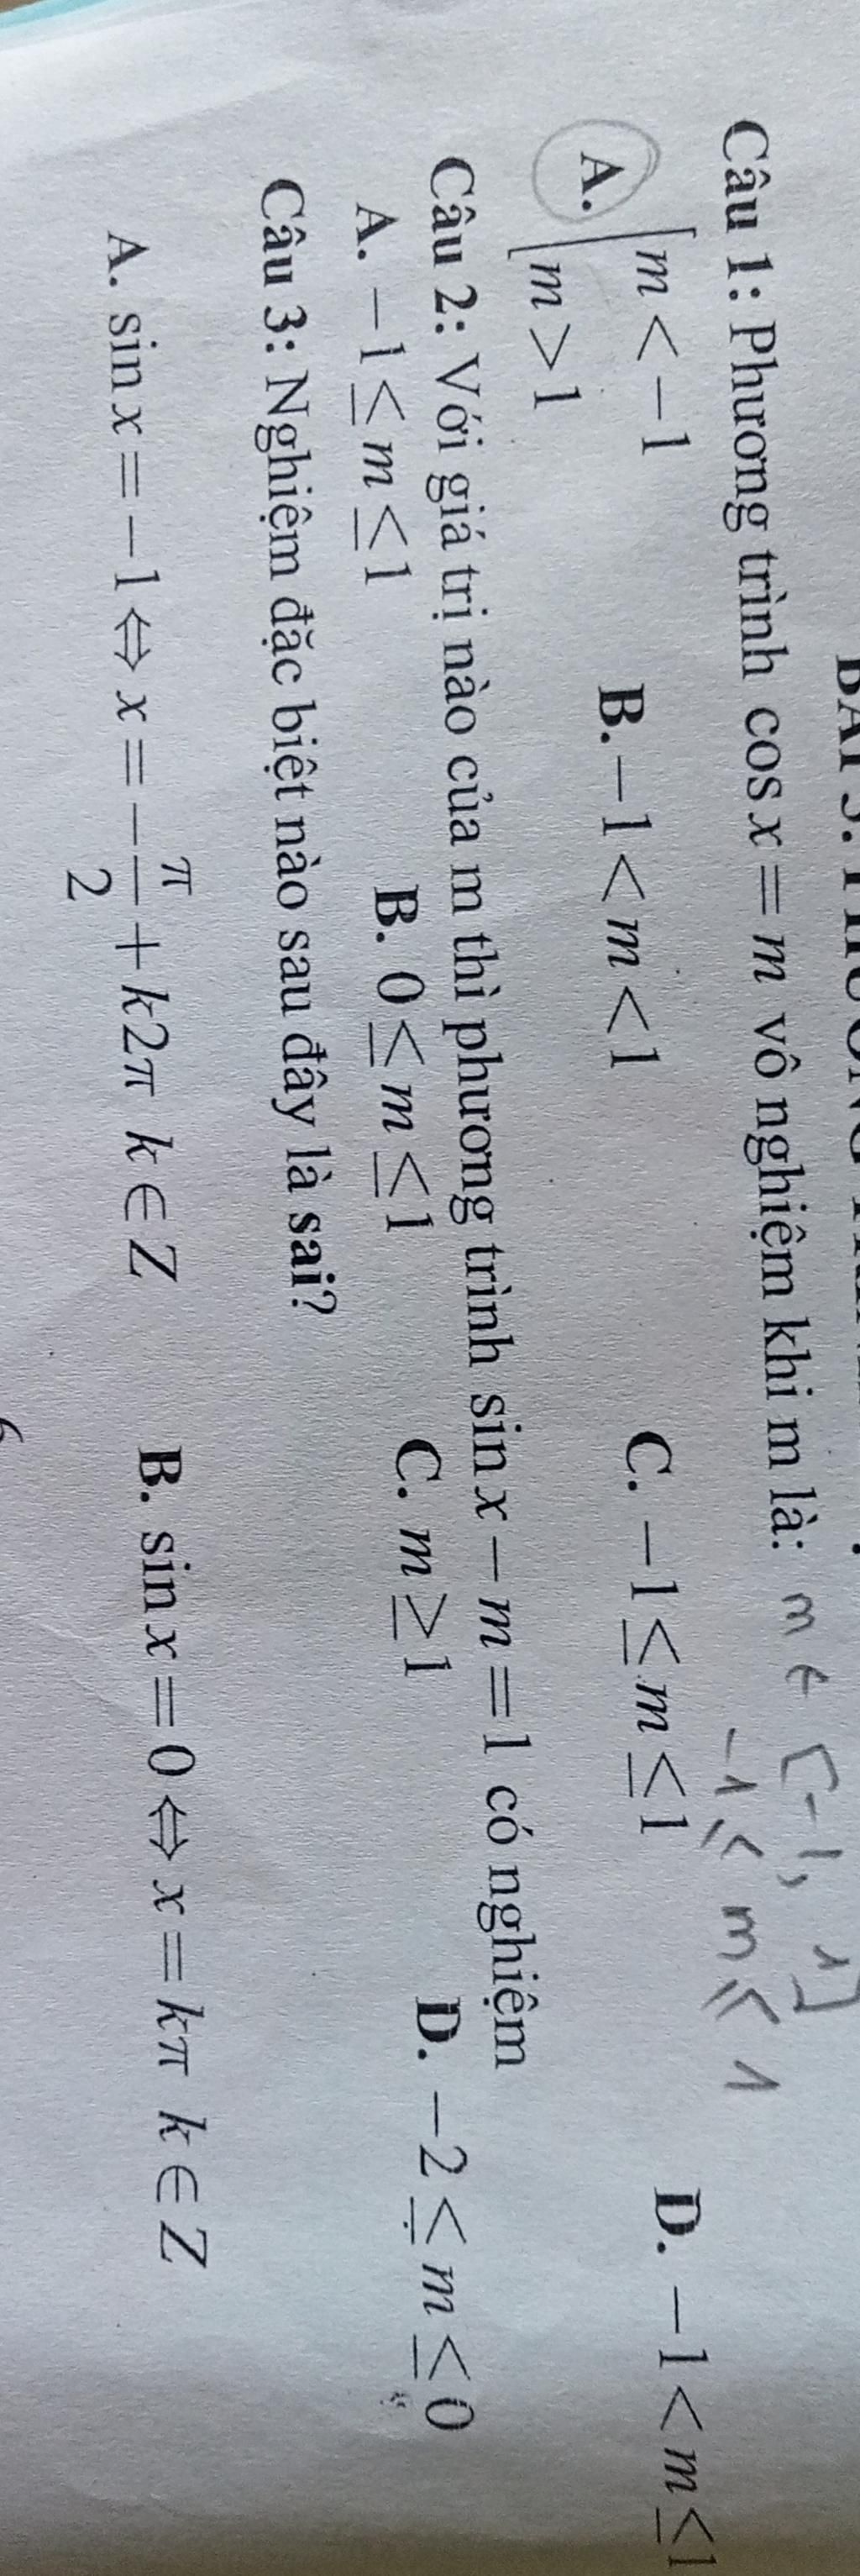 Câu 1: Phương trình cos x = m vô nghiệm khi m là: m ∈ [-1, 1]
-1 ≤ m ≤ 1
A. [ m < −1
m > 1
B. −1 < m < 1 C. −1 ≤ m ≤ 1 D. −1 < m ≤ 1
Câu 2: Với giá trị nào của m thì phương trình sin x − m = 1 có nghiệm
A. −1 ≤ m ≤ 1 B. 0 ≤ m ≤ 1 C. m ≥ 1 D. −2 ≤ m ≤ 0
Câu 3: Nghiệm đặc biệt nào sau đây là sai?
A. sin x = −1 ⇔ x = −π/2 + k2π k ∈ Z B. sin x = 0 ⇔ x = kπ k ∈ Z